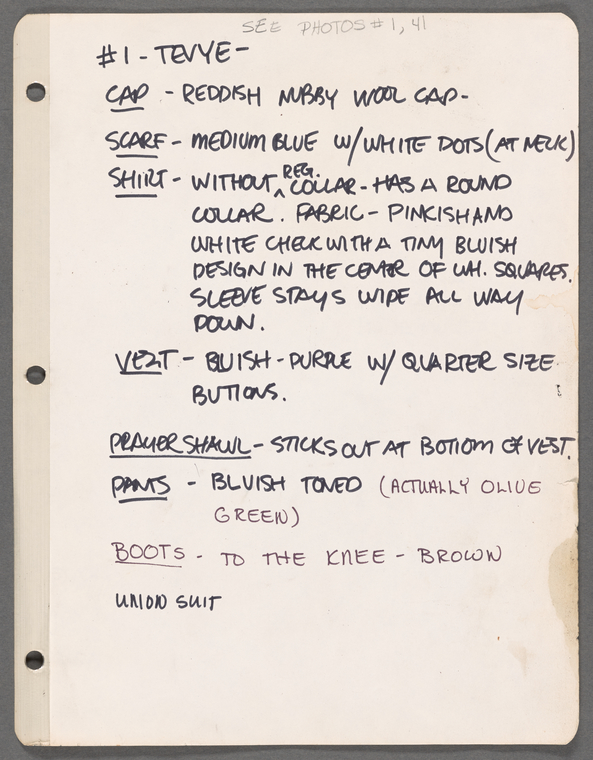 SEE PHOTOS #1, 41
#1 - TEVYE -
CAP - REDDISH NUBBY WOOL CAP -
SCARF - MEDIUM BLUE W/WHITE DOTS (AT NECK)
SHIRT - WITHOUT ^REG. COLLAR - HAS A ROUND
COLLAR. FABRIC - PINKISH AND
WHITE CHECK WITH A TINY BLUISH
DESIGN IN THE CENTER OF WH. SQUARES.
SLEEVE STAYS WIDE ALL WAY
DOWN.
VEST - BLUISH - PURPLE W/ QUARTER SIZE
BUTTONS.
PRAYER SHAWL - STICKS OUT AT BOTTOM OF VEST.
PANTS - BLUISH TONED (ACTUALLY OLIVE
GREEN)
BOOTS - TO THE KNEE - BROWN
UNION SUIT